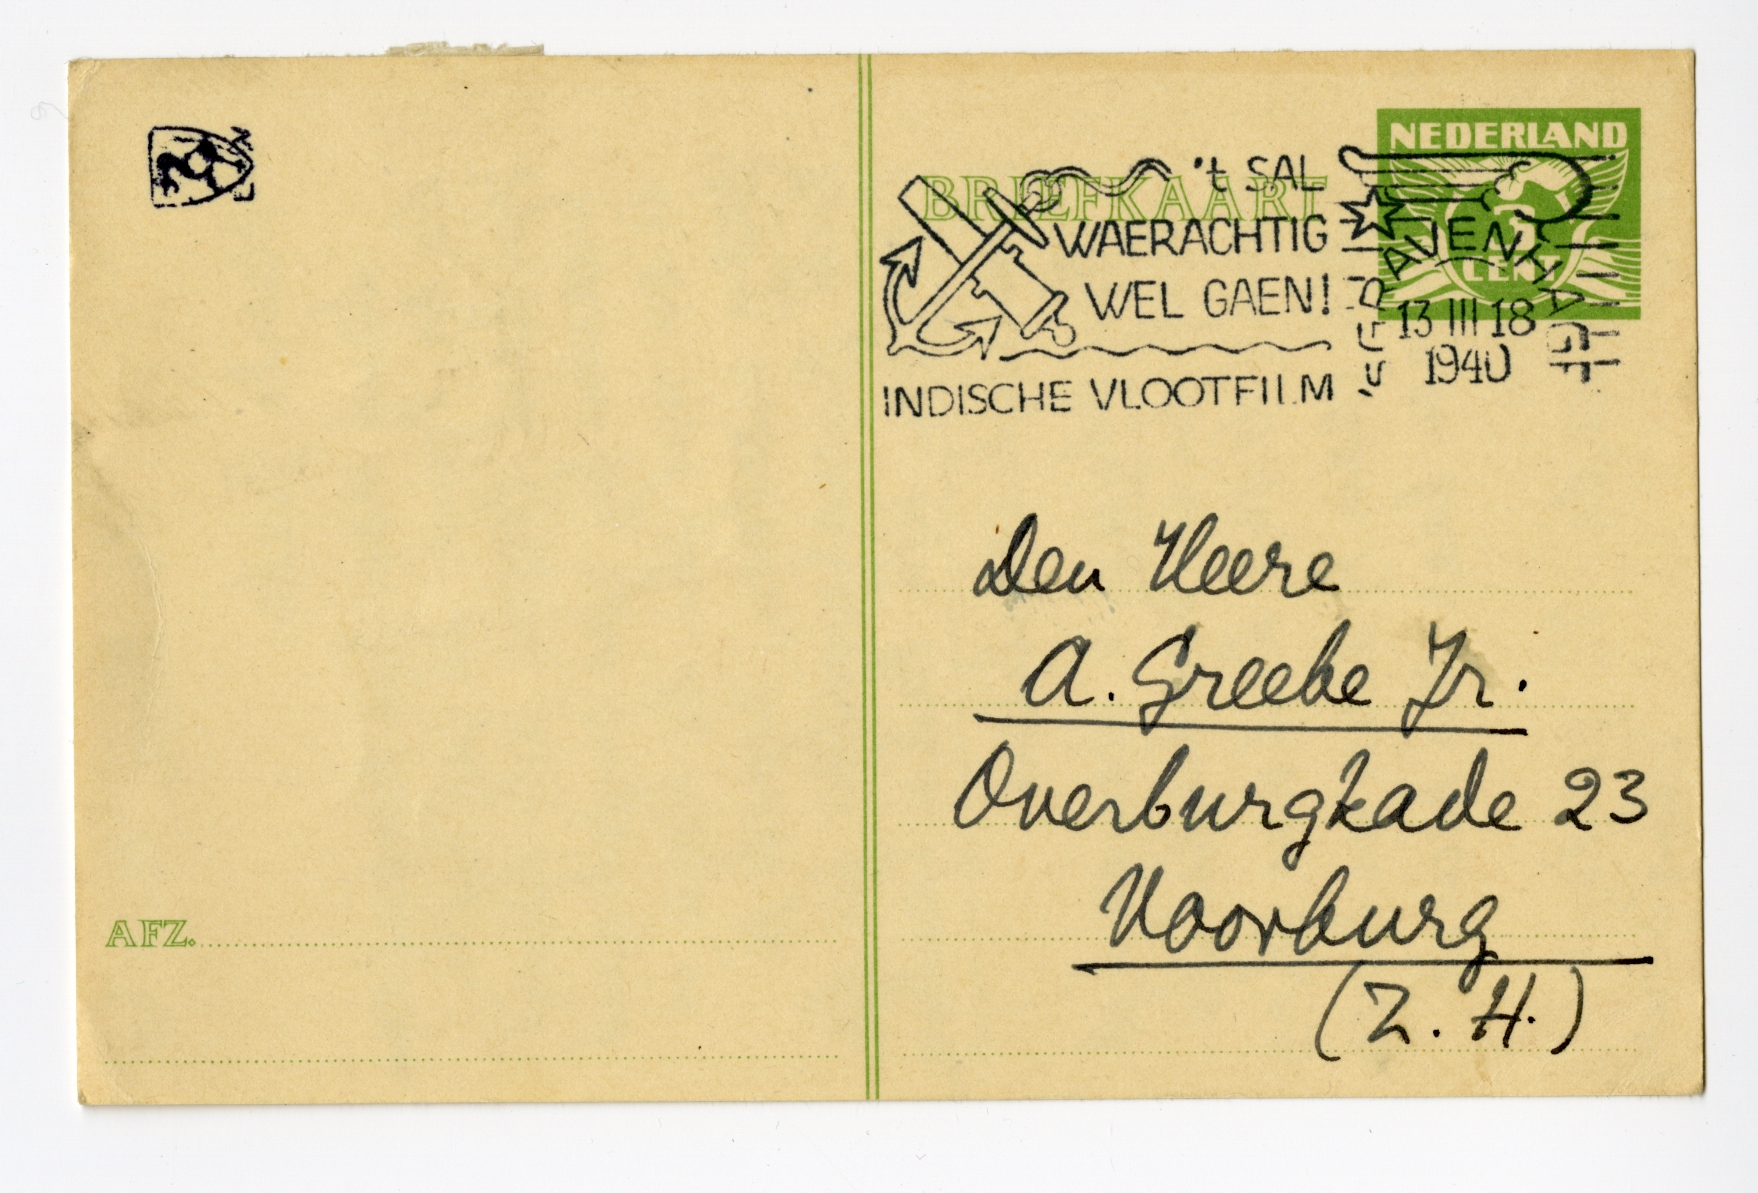 NEDERLAND
BRIEFKAART
3
CENT
't SAL
WAERACHTIG
WEL GAEN!
INDISCHE VLOOTFILM
'S GRAVENHAGE
13 III 18
1940
Den Heere
A. Greebe Jr.
Overburgkade 23
Voorburg
(Z. H.)
AFZ.